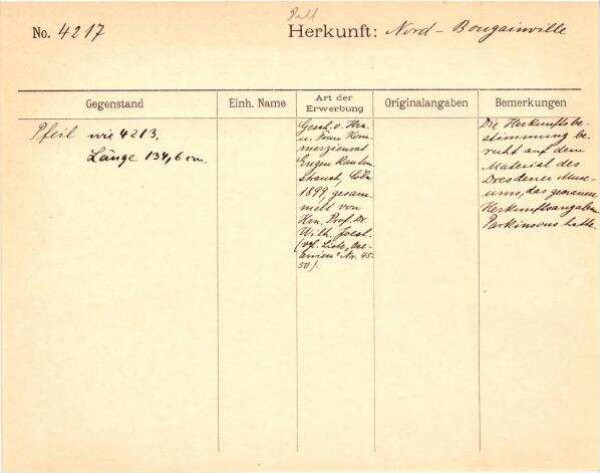 No. 4217
Herkunft: Nord-Bougainville
Gegenstand
Einh. Name
Art der
Erwerbung
Originalangaben
Bemerkungen
Pfeil wie 4213.
Länge 134,6 cm.
Gesch. v. Hrn.
u. Frau Kom-
merzienrat
Eugen Rauten-
strauch, Cöln
1899 gesam-
melt von
Hrn. Prof. Dr.
Wilh. Joest.
(vf. Liste, Oce-
anien" Nr. 45-
50).
Die Herkunftsbe-
stimmung be-
ruht auf dem
Material des
Dresdener Muse-
ums, das genauere
Herkunftsangaben
Parkinsons hatte.